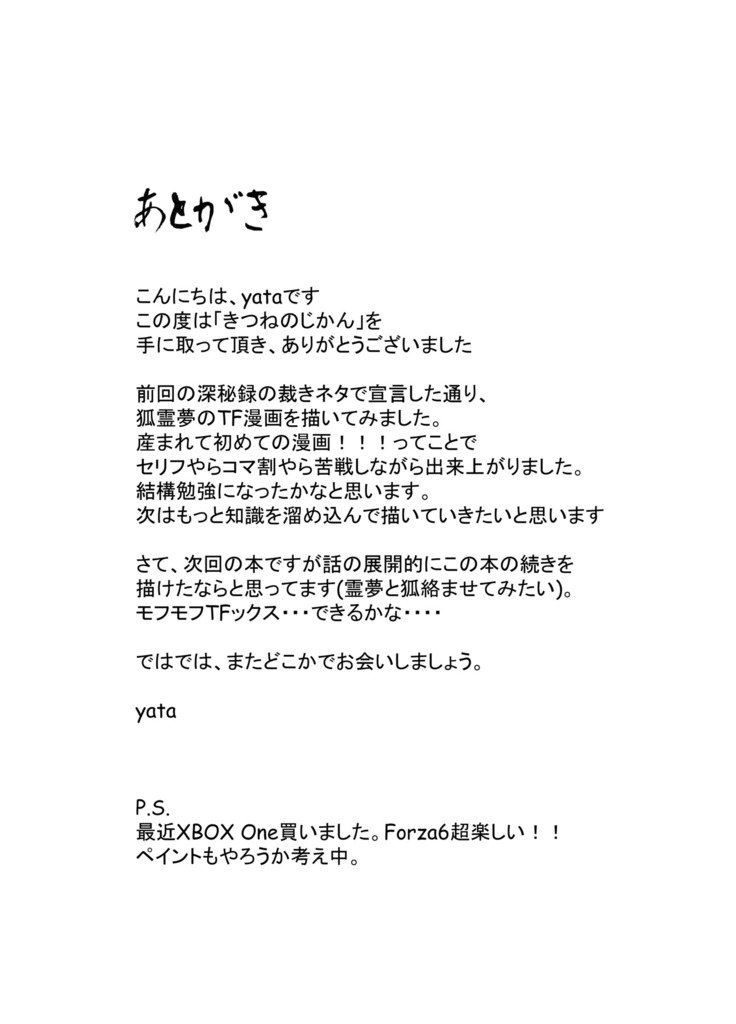 あとがき
こんにちは、yataです
この度は「きつねのじかん」を
手に取って頂き、ありがとうございました
前回の深秘録の裁きネタで宣言した通り、
狐霊夢のTF漫画を描いてみました。
産まれて初めての漫画！！！ってことで
セリフやらコマ割やら苦戦しながら出来上がりました。
結構勉強になったかなと思います。
次はもっと知識を溜め込んで描いていきたいと思います
さて、次回の本ですが話の展開的にこの本の続きを
描けたならと思ってます(霊夢と狐絡ませてみたい)。
モフモフTFックス・・・できるかな・・・・
ではでは、またどこかでお会いしましょう。
yata
P.S.
最近XBOX One買いました。Forza6超楽しい！！
ペイントもやろうか考え中。